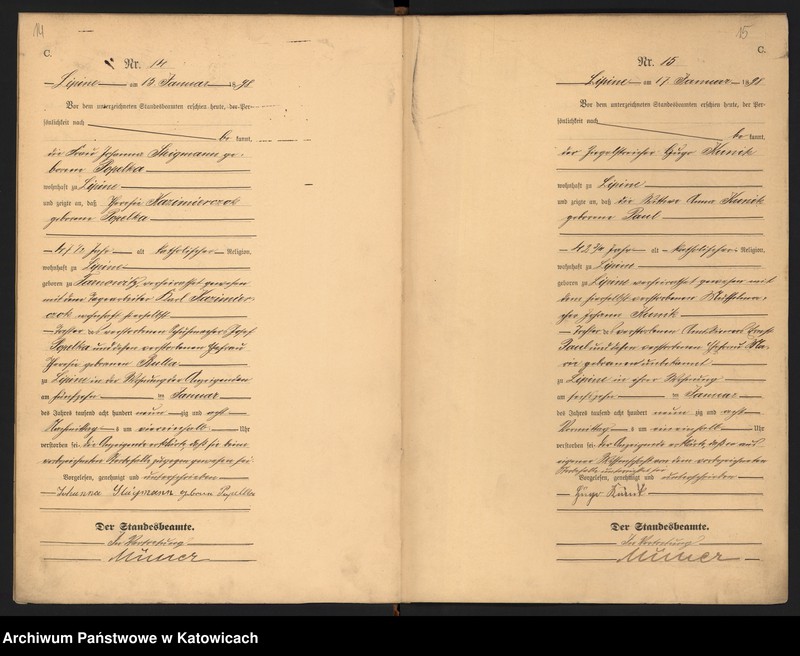 14
C.
Nr. 14
Lipine am 15 Januar 1898
Vor dem unterzeichneten Standesbeamten erschien heute, der Per-
sönlichkeit nach
be kannt,
die Frau Johanna Stiegmann ge-
borene Popelka
wohnhaft zu Lipine
und zeigte an, daß Kazimierczok
geborene Popelka
47 1/2 Jahr alt katholischer Religion,
wohnhaft zu Lipine
geboren zu Tarnowitz verheirathet gewesen
mit dem Karl Kazimier-
czok wohnhaft hierselbst
Tochter des verstorbenen Schuhmachers Josef
Popelka und dessen verstorbenen Ehefrau
geborenen Kulla
zu Lipine in der Wohnung der Anzeigenden
am fünfzehn ten Januar
des Jahres tausend acht hundert neun zig und acht
Nachmittag s um ein einhalb Uhr
verstorben sei. die Anzeigende erklärte, daß sie beim
vorbezeichneten Sterbefalle zugegen gewesen sei
Vorgelesen, genehmigt und unterschrieben
Johanna Stiegmann geborene Popelka
Der Standesbeamte.
In Vertretung
15
C.
Nr. 15
Lipine am 17 Januar 1898
Vor dem unterzeichneten Standesbeamten erschien heute, der Per-
sönlichkeit nach
be kannt,
der Hugo Kunik
wohnhaft zu Lipine
und zeigte an, daß die Wittwe Anna Kunik
geborene Paul
42 3/4 Jahr alt katholischer Religion,
wohnhaft zu Lipine
geboren zu Lipine verheirathet gewesen mit
dem hierselbst verstorbenen
Johann Kunik
Tochter des verstorbenen
Paul und dessen verstorbenen Ehefrau Ma-
rie geborenen unbekannt
zu Lipine in ihrer Wohnung
am sechszehn ten Januar
des Jahres tausend acht hundert neun zig und acht
Vormittag s um ein einhalb Uhr
verstorben sei. der Anzeigende erklärte, daß er aus
eigener Wissenschaft von dem vorbezeichneten
Sterbefalle unterrichtet sei
Vorgelesen, genehmigt und unterschrieben
Hugo Kunik
Der Standesbeamte.
In Vertretung
Archiwum Państwowe w Katowicach